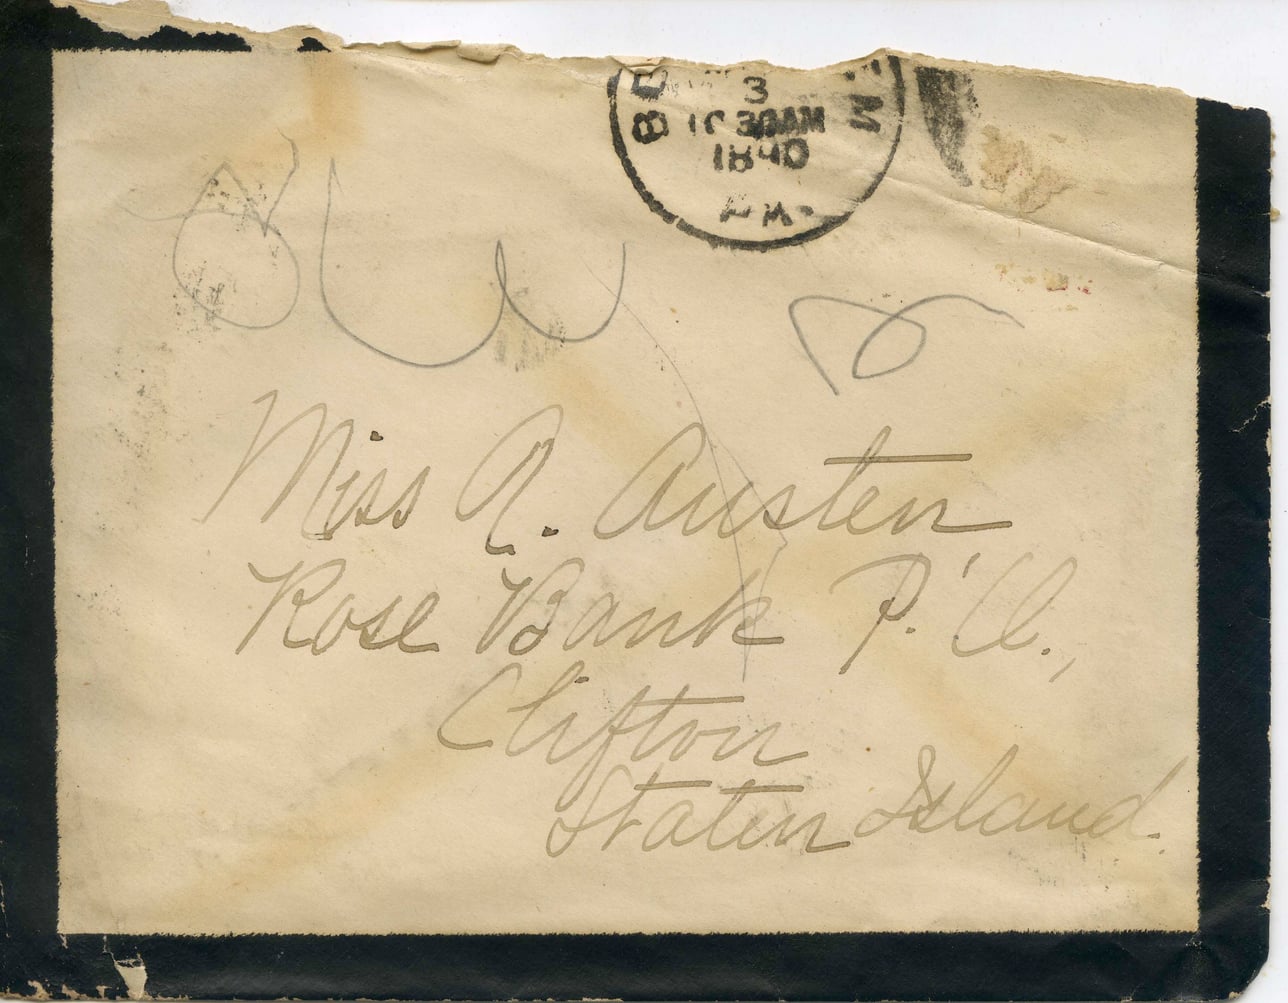 3
10 30AM
1890
Miss A. Austen
Rose Bank P.'O.,
Clifton
Staten Island.